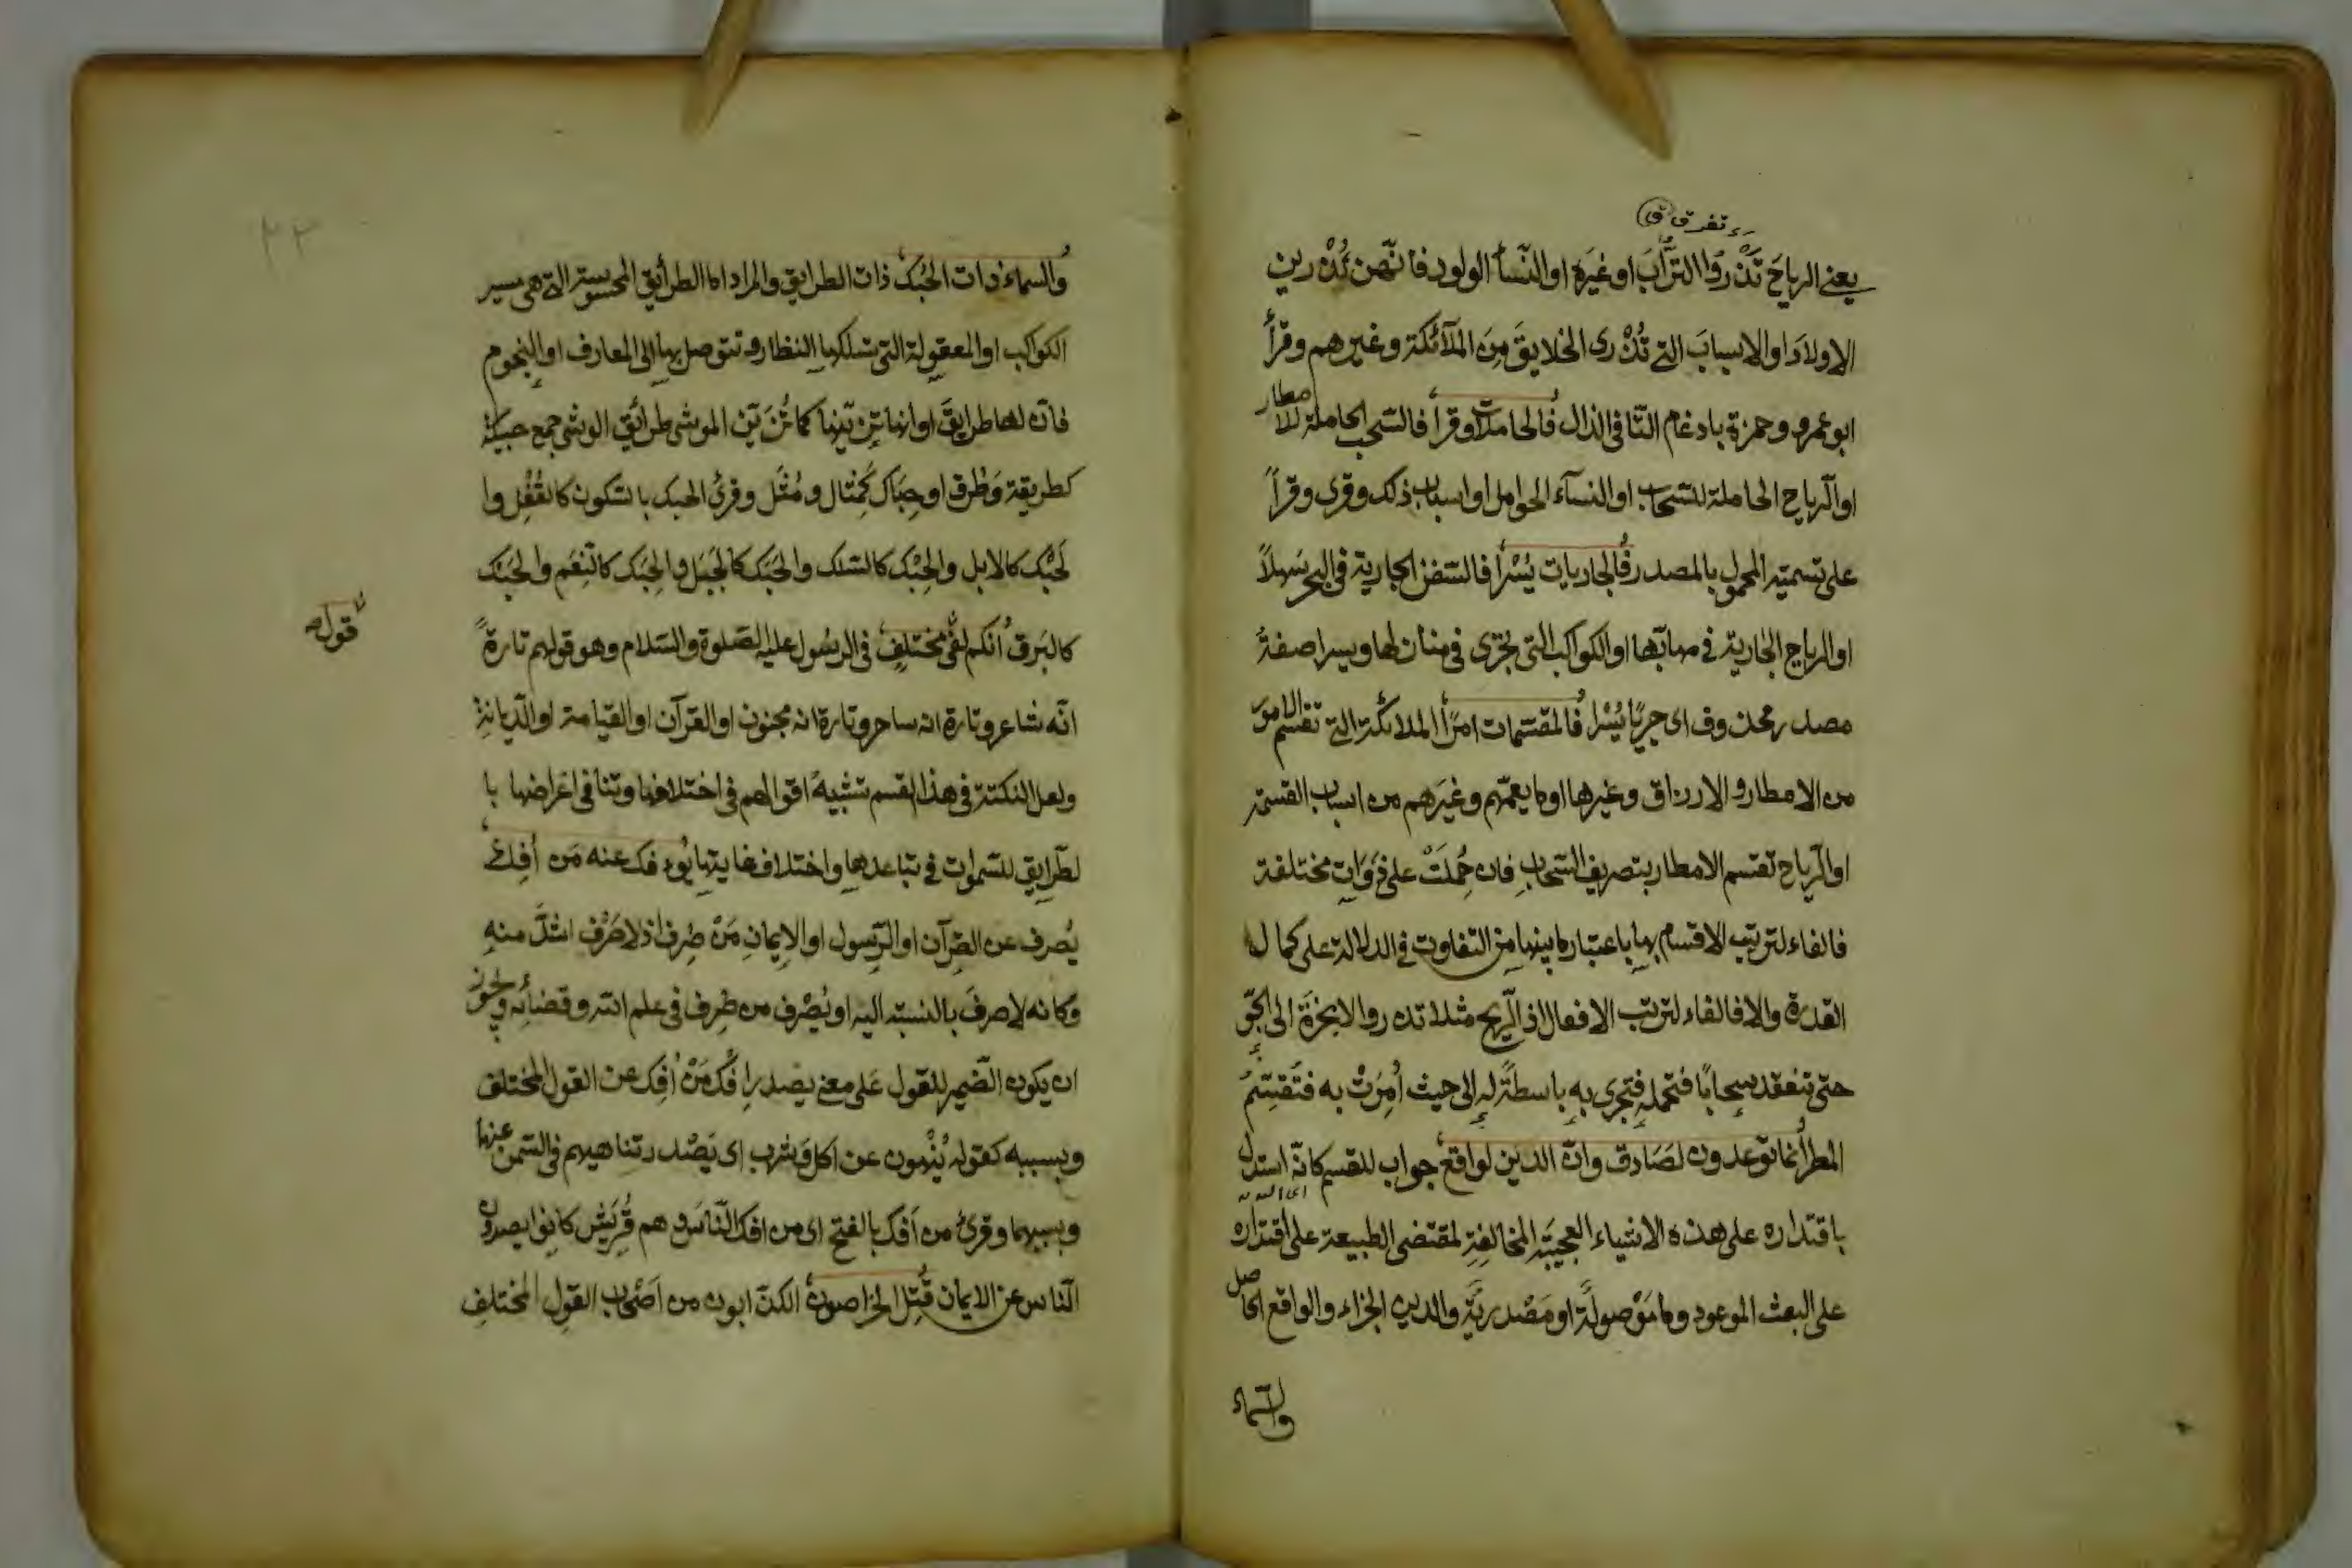 تفرق ق
يعني الرياحَ تَذْرُوا الترَّابَ اوغيَرهَ اوالنّسأ الولود فانّهن تُذْرين
الاولادَ اوالاسبابَ التي تُذْرى الخلايقَ مِنَ الملآئكة وغيرهم وقرأ
ابوعمرو وحمزة بادغام التّا فى الذال فُالحاملات وقرأ فالسّحب الحاملة للامطار
اوالرّياح الحاملة للسّحاب اوالنسآء الحوامل اواسباب ذلك وقرى وقرأً
على تسمية المحمول بالمصدر فُالجاريات يُسْرا فالسّفن الجارية فى البحر سَهلاً
اوالرياح الجارية في مهابّها اوالكواكب التى تجْرى فى منازلها ويسرا صفةُ
مصدر محذوف اى جريًا يُسْرا فُالمقسّمات امرًا الملائكة التي تقسم الامورَ
من الامطار والارزاق وغيرها اوما يعمّهم وغيَرهم من اسباب القسمة
اوالرّياح تقسم الامطار بتصريف السّحابِ فان حُمِلَتْ على ذَوَاتٍ مختلفة
فالفاء لترتيب الاقسام بهاِ باعتبار ما بينها مِن التفاوت في الدلالة على كمال
القدرة والا فالفاء لترتيب الافعال اذ الرّيح مثلا تذروالابخرَةَ الى الجّو
حتى تنعقد سحابًا فتحمله فتجرى بهِ باسطةً لهِ الى حيث اُمِرَتْ به فتقسّمُ
المطر اُنما توعدون لصَادق وانّ الدين لواقع جواب للقسم كانّه استدل
باقتداره على هذه الاشياء العجيبَة المخالفِة لمقتضى الطبيعة على اقتداره
على البعث الموعود وما مَوْصولةً اومَصْدريَّة والدين الجزاء والواقع الحاصل
والسّماء
وُالسماء ذات الحُبُك ذات الطرايق والمراد اما الطرأيق المحسوسة التي هى مسير
الكواكب اوالمعقولة التى تسلكها النظار وتتوصل بها الى المعارف اوالنجوم
فانّ لها طرايقَ اوانها تزيّنها كما تُزَيّن الموشى طرأئق الوشى جمع حبيكة
كطريقة وَطُرق اوحِبَاك كَمِثال ومُثَل وقرئ الحبك بالسّكون كالقُفْل وا
لَحِبْك كالابل والحِبْك كالسّلك والحَبَك كالجَبَل والحِبَك كالنِّعَم والحُبَك
كالبَرق اُنكم لفى مختلفٍ في الرسُول عليه الصّلوة والسّلام وهو قولهم تارةً
قول صح
انّه شاعر وتارة انه ساحر وتارة انه مجنون اوالقرآن اوالقيامة اوالدّيانةِ
ولعل النكتة في هذا القسم تشبيهُ اقوالهم فى اختلافها وتنافى اغراضها با
لطّرايق للسّموات في تباعدها واختلاف غاياتها يُؤفك عنه مَن اُفِكَ
يُصرف عن القرآن اوالرّسول اوالايمانِ مَنْ صُرِف اذ لا صَرْف اشدَّ منهِ
وكانه لا صرفَ بالنسبة اليه اويُصْرف من صُرِف فى علم الله وقضائه ويجوز
ان يكون الضّمير للقول عَلى معنى يصدر اِفكُ مَنْ اُفِك عن القول المختلف
وبسببه كقوله يُنْهون عن اكل وَشرب اى يَصْدر تناهيهم في السّمن عنهما
وبسببهما وقرئ من اَفَكَ بالفتح اى من افك النّاسَ وهم قُرَيش كانوا يصدون
النّاس عن الايمان قُتِل الخرّاصون الكذّابون من اَصْحاب القولِ المختلفِ